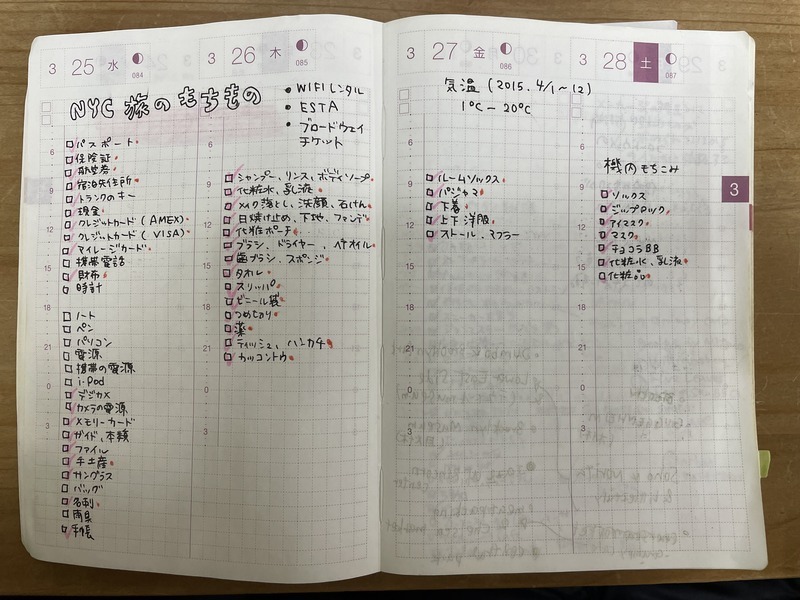 3 25 水 084
NYC 旅のもちもの
6
パスポート
保険証
航空券
宿泊先住所
9
トランクのキー
現金
クレジットカード (AMEX)
12
クレジットカード (VISA)
マイレージカード
携帯電話
15
財布
時計
18
ノート
ペン
パソコン
21
電源
携帯の電源
i-Pod
0
デジカメ
カメラの電源
メモリーカード
3
ガイド、本類
ファイル
手土産
サングラス
バッグ
名刺
雨具
手帳
3 26 木 085
• WIFIレンタル
• ESTA
• ブロードウェイ
チケット
6
シャンプー、リンス、ボディソープ
9
化粧水、乳液
メイク落とし、洗顔、石けん
日焼け止め、下地、ファンデ
12
化粧ポーチ
ブラシ、ドライヤー、ヘアオイル
歯ブラシ、スポンジ
15
タオル
スリッパ
ビニール袋
18
つめきり
薬
ティッシュ、ハンカチ
21
カッコントウ
0
3
3 27 金 086
気温 (2015. 4/1〜12)
1℃ − 20℃
6
ルームソックス
9
パジャマ
下着
上下 洋服
12
ストール、マフラー
15
18
21
0
3
3 28 土 087
6
機内もちこみ
9
ソックス
ジップロック
アイマスク
12
マスク
チョコラBB
化粧水、乳液
15
化粧品
18
21
0
3
3